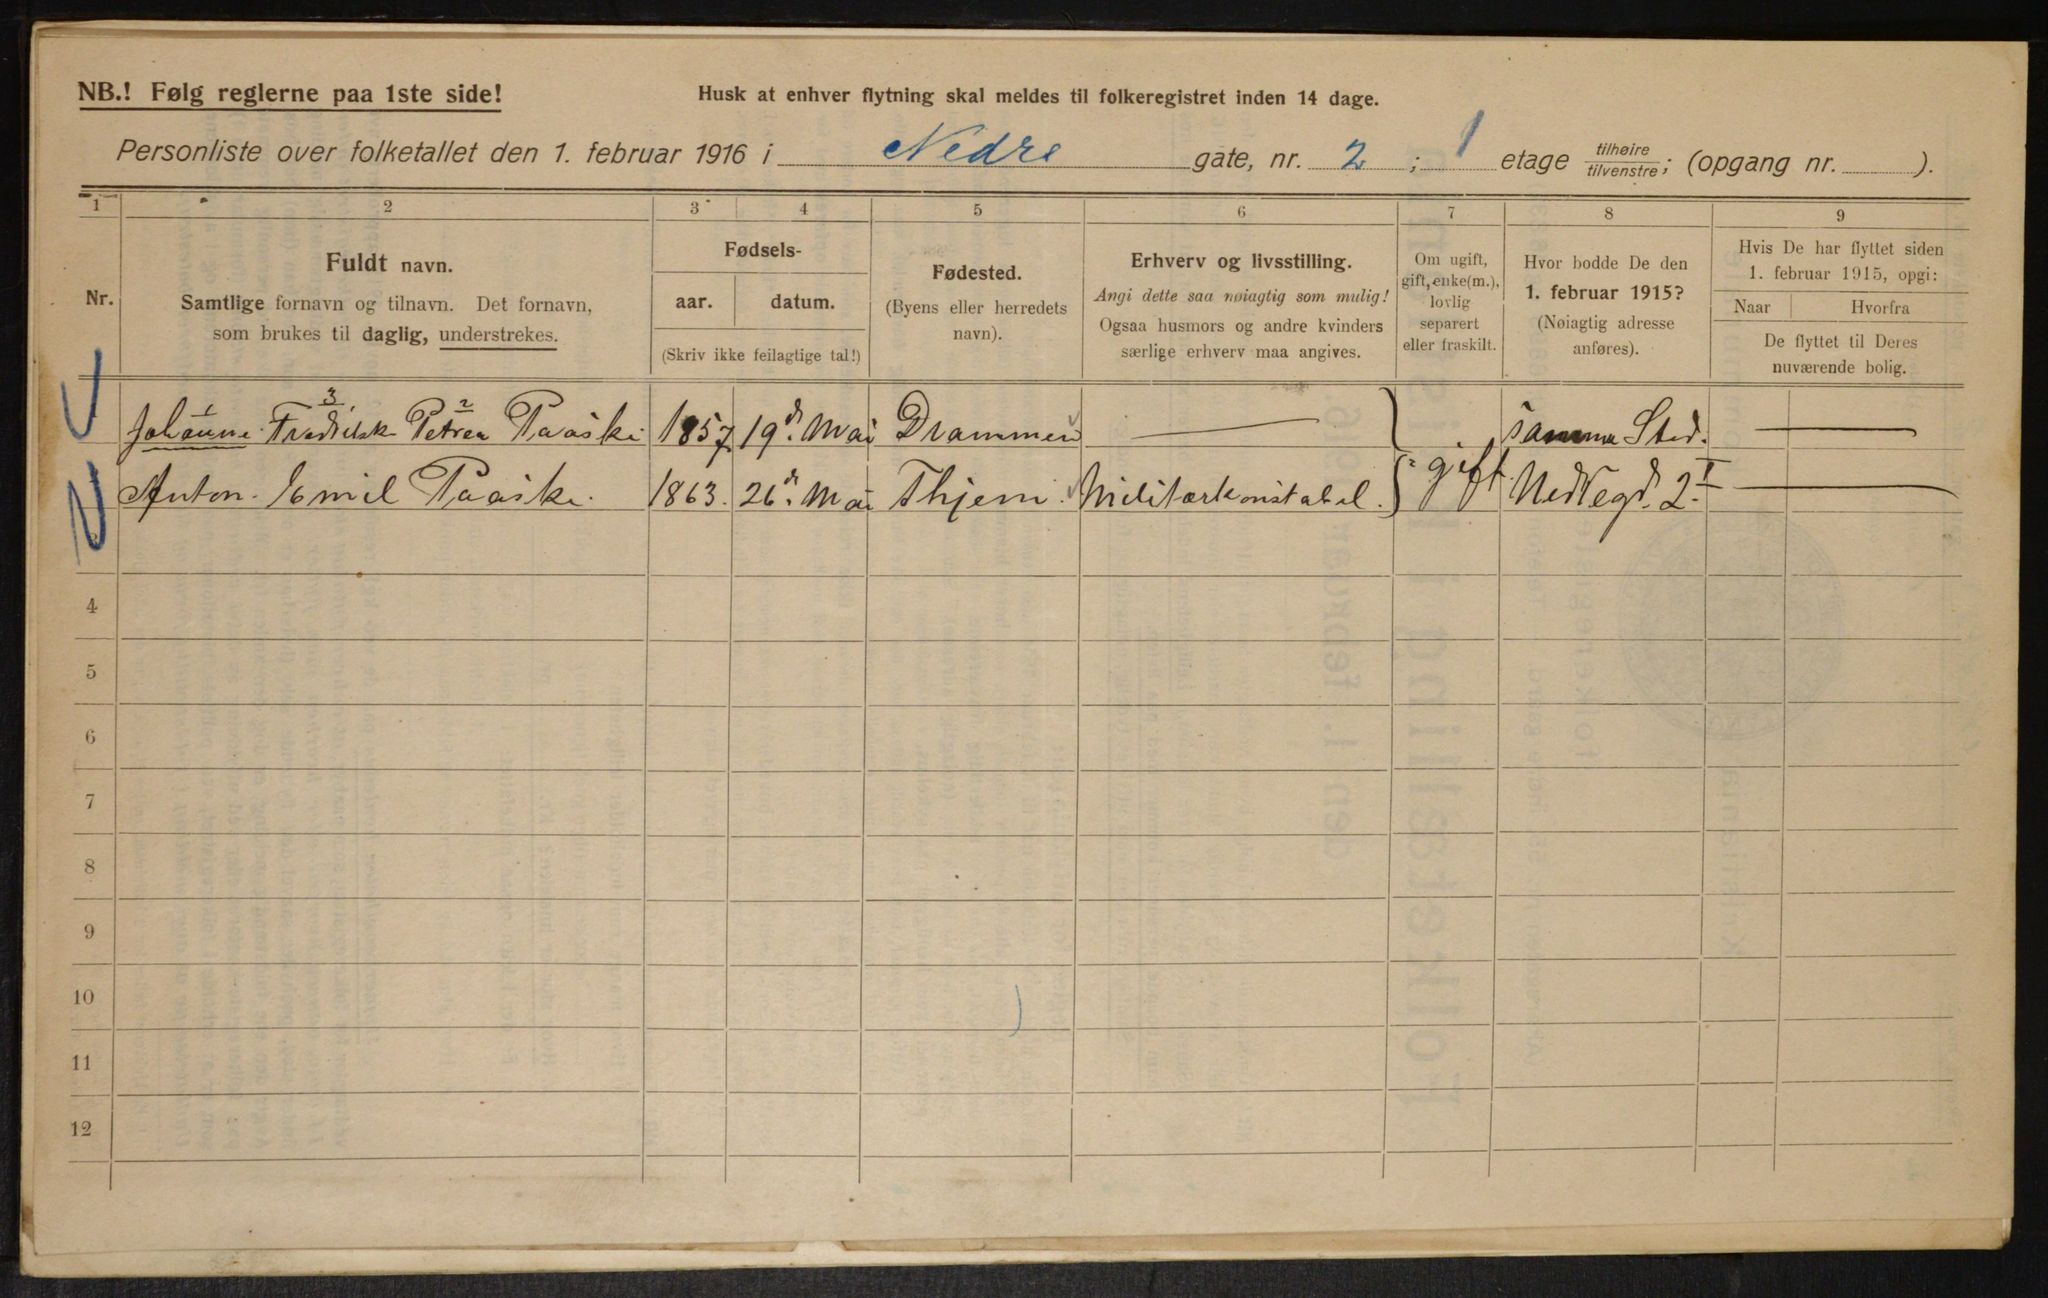 NB.! Følg reglerne paa 1ste side!
Husk at enhver flytning skal meldes til folkeregistret inden 14 dage.
Personliste over folketallet den 1. februar 1916 i Nedre gate, nr. 2 ; 1 etage tilhøire/tilvenstre; (opgang nr. ).
1 2 3 4 5 6 7 8 9
Nr.
Fuldt navn.
Samtlige fornavn og tilnavn. Det fornavn,
som brukes til daglig, understrekes.
Fødsels-
aar. datum.
(Skriv ikke feilagtige tal!)
Fødested.
(Byens eller herredets
navn).
Erhverv og livsstilling.
Angi dette saa nøiagtig som mulig!
Ogsaa husmors og andre kvinders
særlige erhverv maa angives.
Om ugift,
gift, enke(m.),
lovlig
separert
eller fraskilt.
Hvor bodde De den
1. februar 1915?
(Nøiagtig adresse
anføres).
Hvis De har flyttet siden
1. februar 1915, opgi:
Naar Hvorfra
De flyttet til Deres
nuværende bolig.
1 3 2
Johanne Fredrikk Petrea Paaske 1857 19d. Mai Drammen — samme Sted. —
Anton Emil Paaske. 1863. 26d. Mai Thjem. Militærkonstabel. gift Nedregd. 2 I —
4
5
6
7
8
9
10
11
12